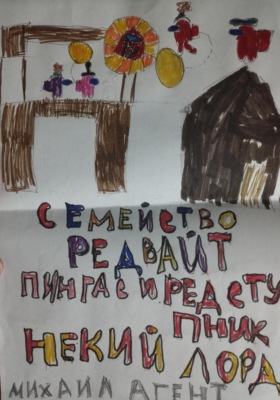 СЕМЕЙСТВО
РЕДВАЙТ
ПИНГАС И РЕД СТУ
ПНИК
НЕКИЙ ЛОРД
МИХАИЛ АГЕНТ